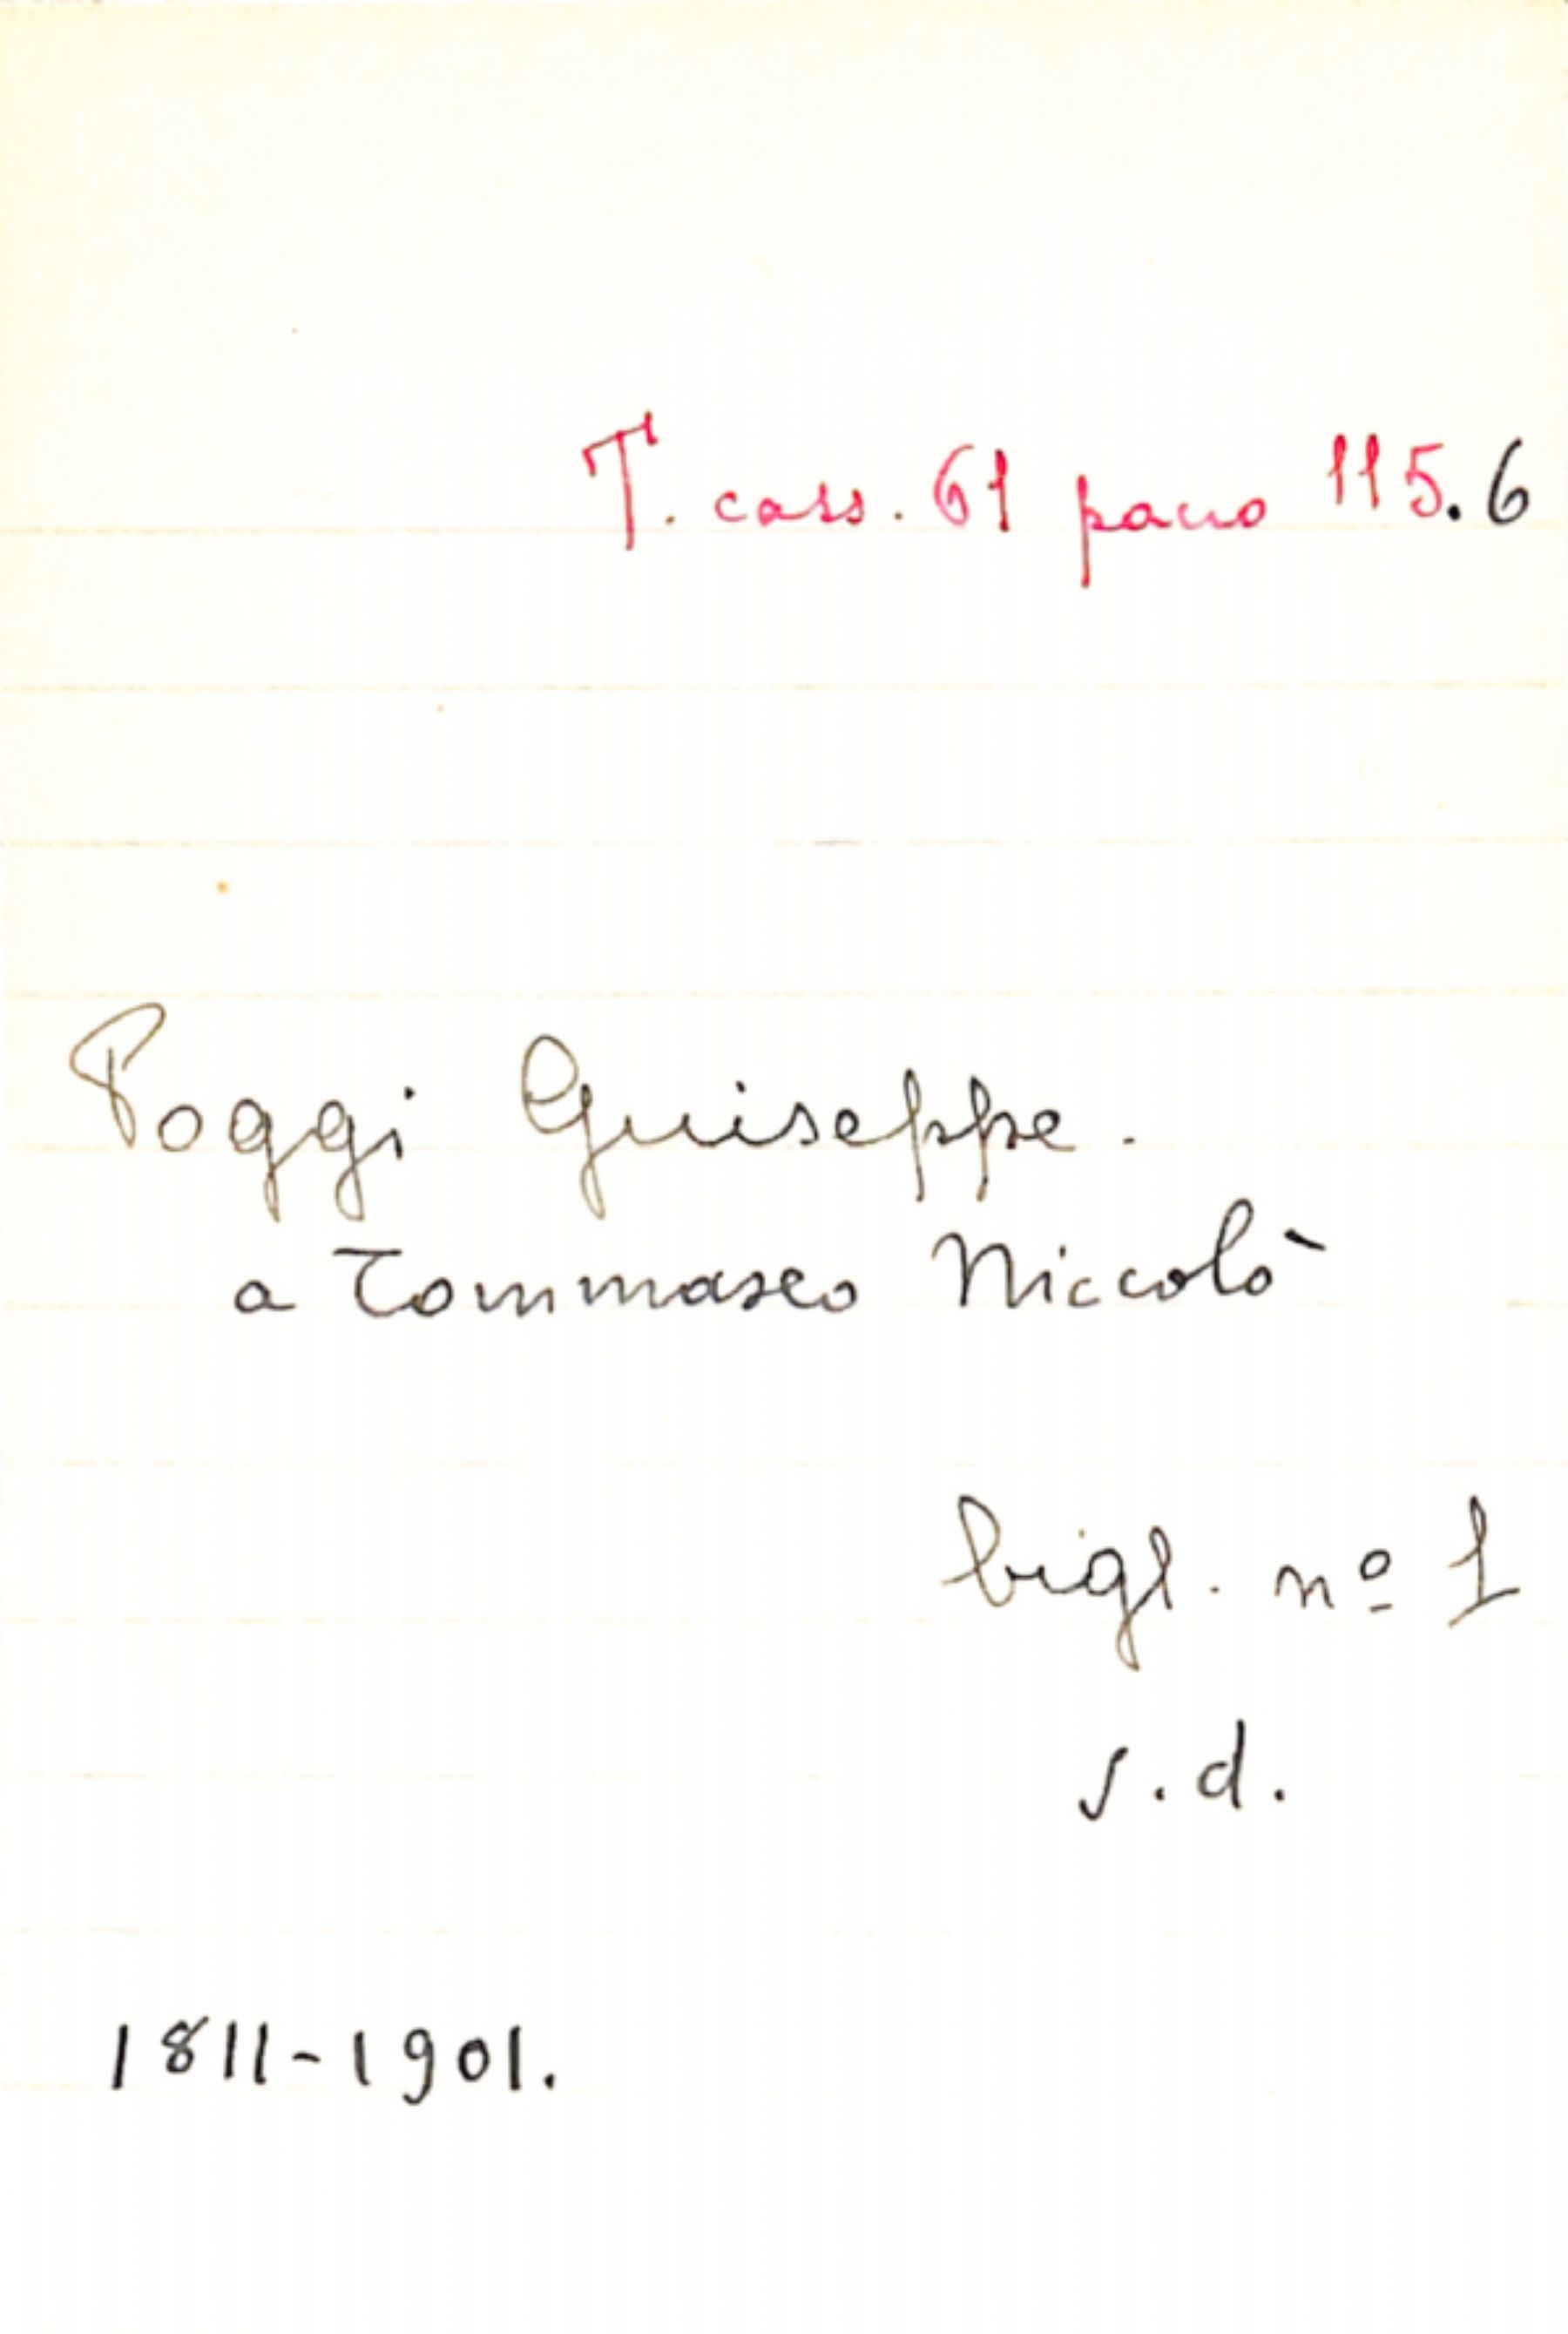 T. cass. 61 pacco 115.6
Poggi Giuseppe.
a Tommaseo Niccolò
bigl. nº 1
s.d.
1811-1901.